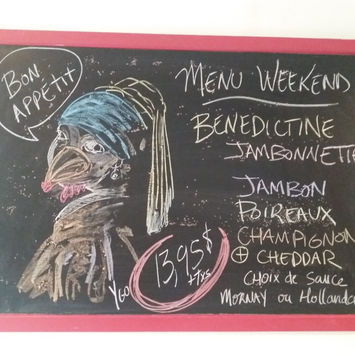 BON
APPÉTIT
MENU WEEKEND
BENEDICTINE
JAMBONNETTE
JAMBON
POIREAUX
CHAMPIGNON
+ CHEDDAR
CHOIX de SAUCE
MORNAY ou Hollanda
13,95$
+TXS
YGO